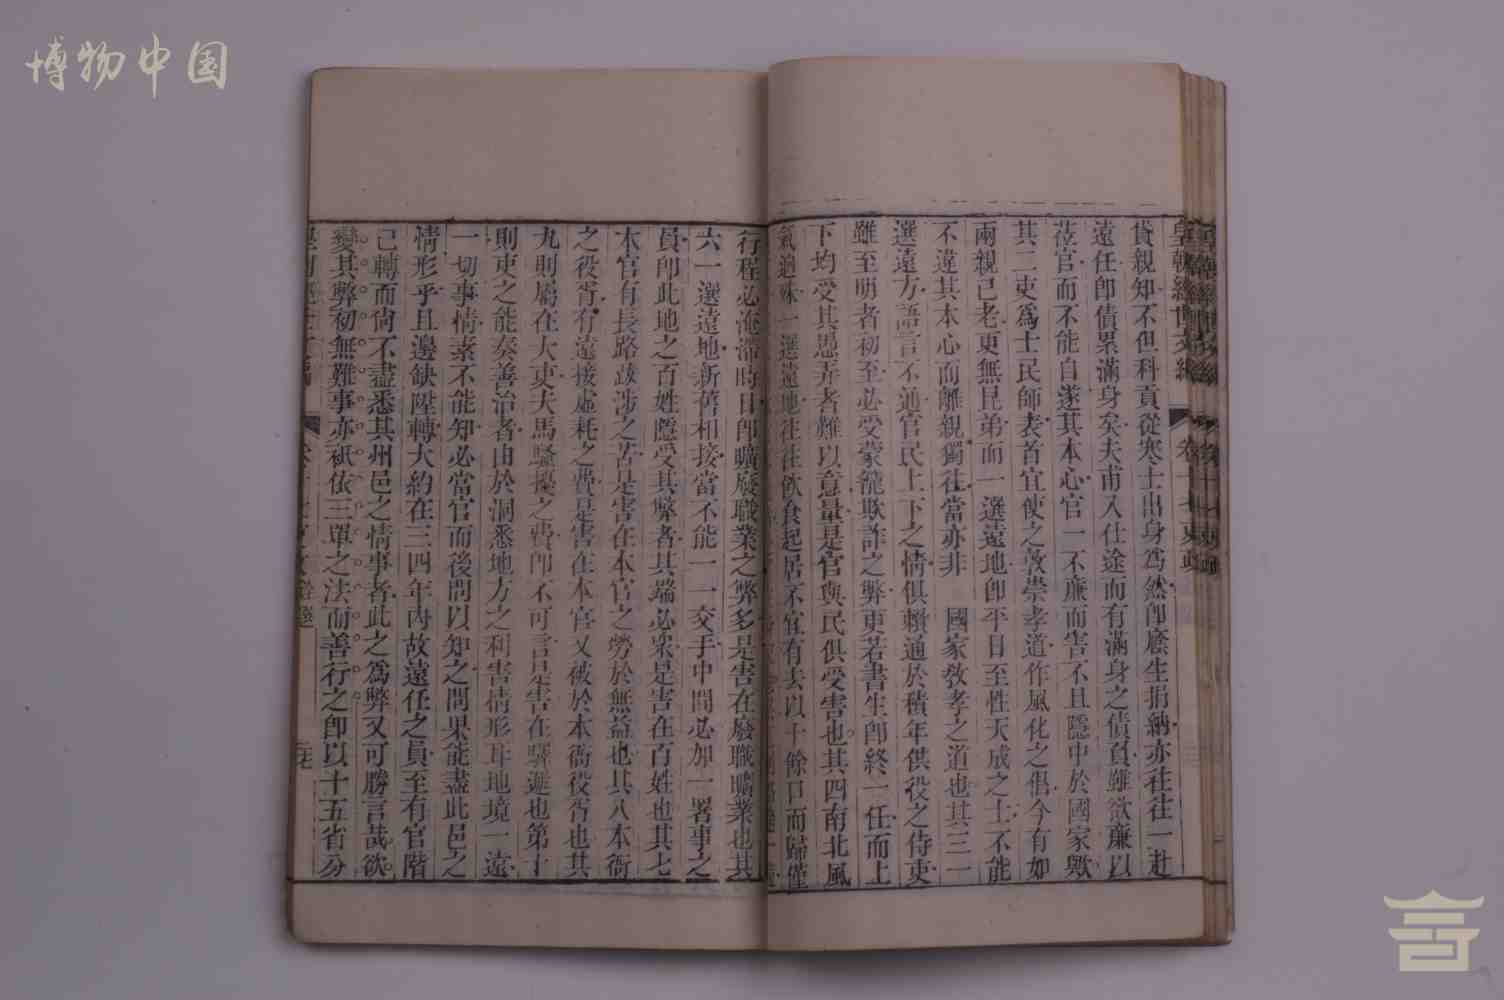 博物中国
貸親知不但科貢從寒士出身爲然卽廕生捐納亦往往一赴
遠任卽債累滿身矣夫甫入仕途而有滿身之債負雖欲廉以
莅官而不能自遂其本心官一不廉而害不且隱中於國家歟
其二吏爲士民師表首宜使之敦崇孝道作風化之倡今有如
兩親已老更無昆弟而一選遠地卽平日至性天成之士不能
不違其本心而離親獨往當亦非　國家敎孝之道也其三一
選遠方語言不通官民上下之情俱賴通於積年供役之侍吏
雖至明者初至必受蒙蘢欺詐之弊更若書生卽終一任而上
下均受其愚弄者難以意量是官與民俱受害也其四南北風
氣迥殊一選遠地往往飲食起居不宜有去以十餘日而歸僅
行程必淹滯時日卽曠廢職業之弊多是害在廢職曠業也其
六一選遠地新舊相接當不能一一交手中間必加一署事之
員卽此地之百姓隱受其弊者其端必衆是害在百姓也其七
本官有長路跋涉之苦是害在本官之勞於無益也其八本衙
之役胥有遠接虛耗之費是害在本官又被於本衙役胥也其
九則屬在大吏夫馬騷擾之費卽不可言是害在驛遞也第十
則吏之能奏善治者由於洞悉地方之利害情形耳地境一遠
一切事情素不能知必當官而後問以知之問果能盡此邑之
情形乎且邊缺陞轉大約在三四年內故遠任之員至有官階
已轉而尙不盡悉其州邑之情事者此之爲弊又可勝言哉欲
變其弊初無難事亦祇依三單之法而善行之卽以十五省分
皇朝經世文編
卷十七吏政